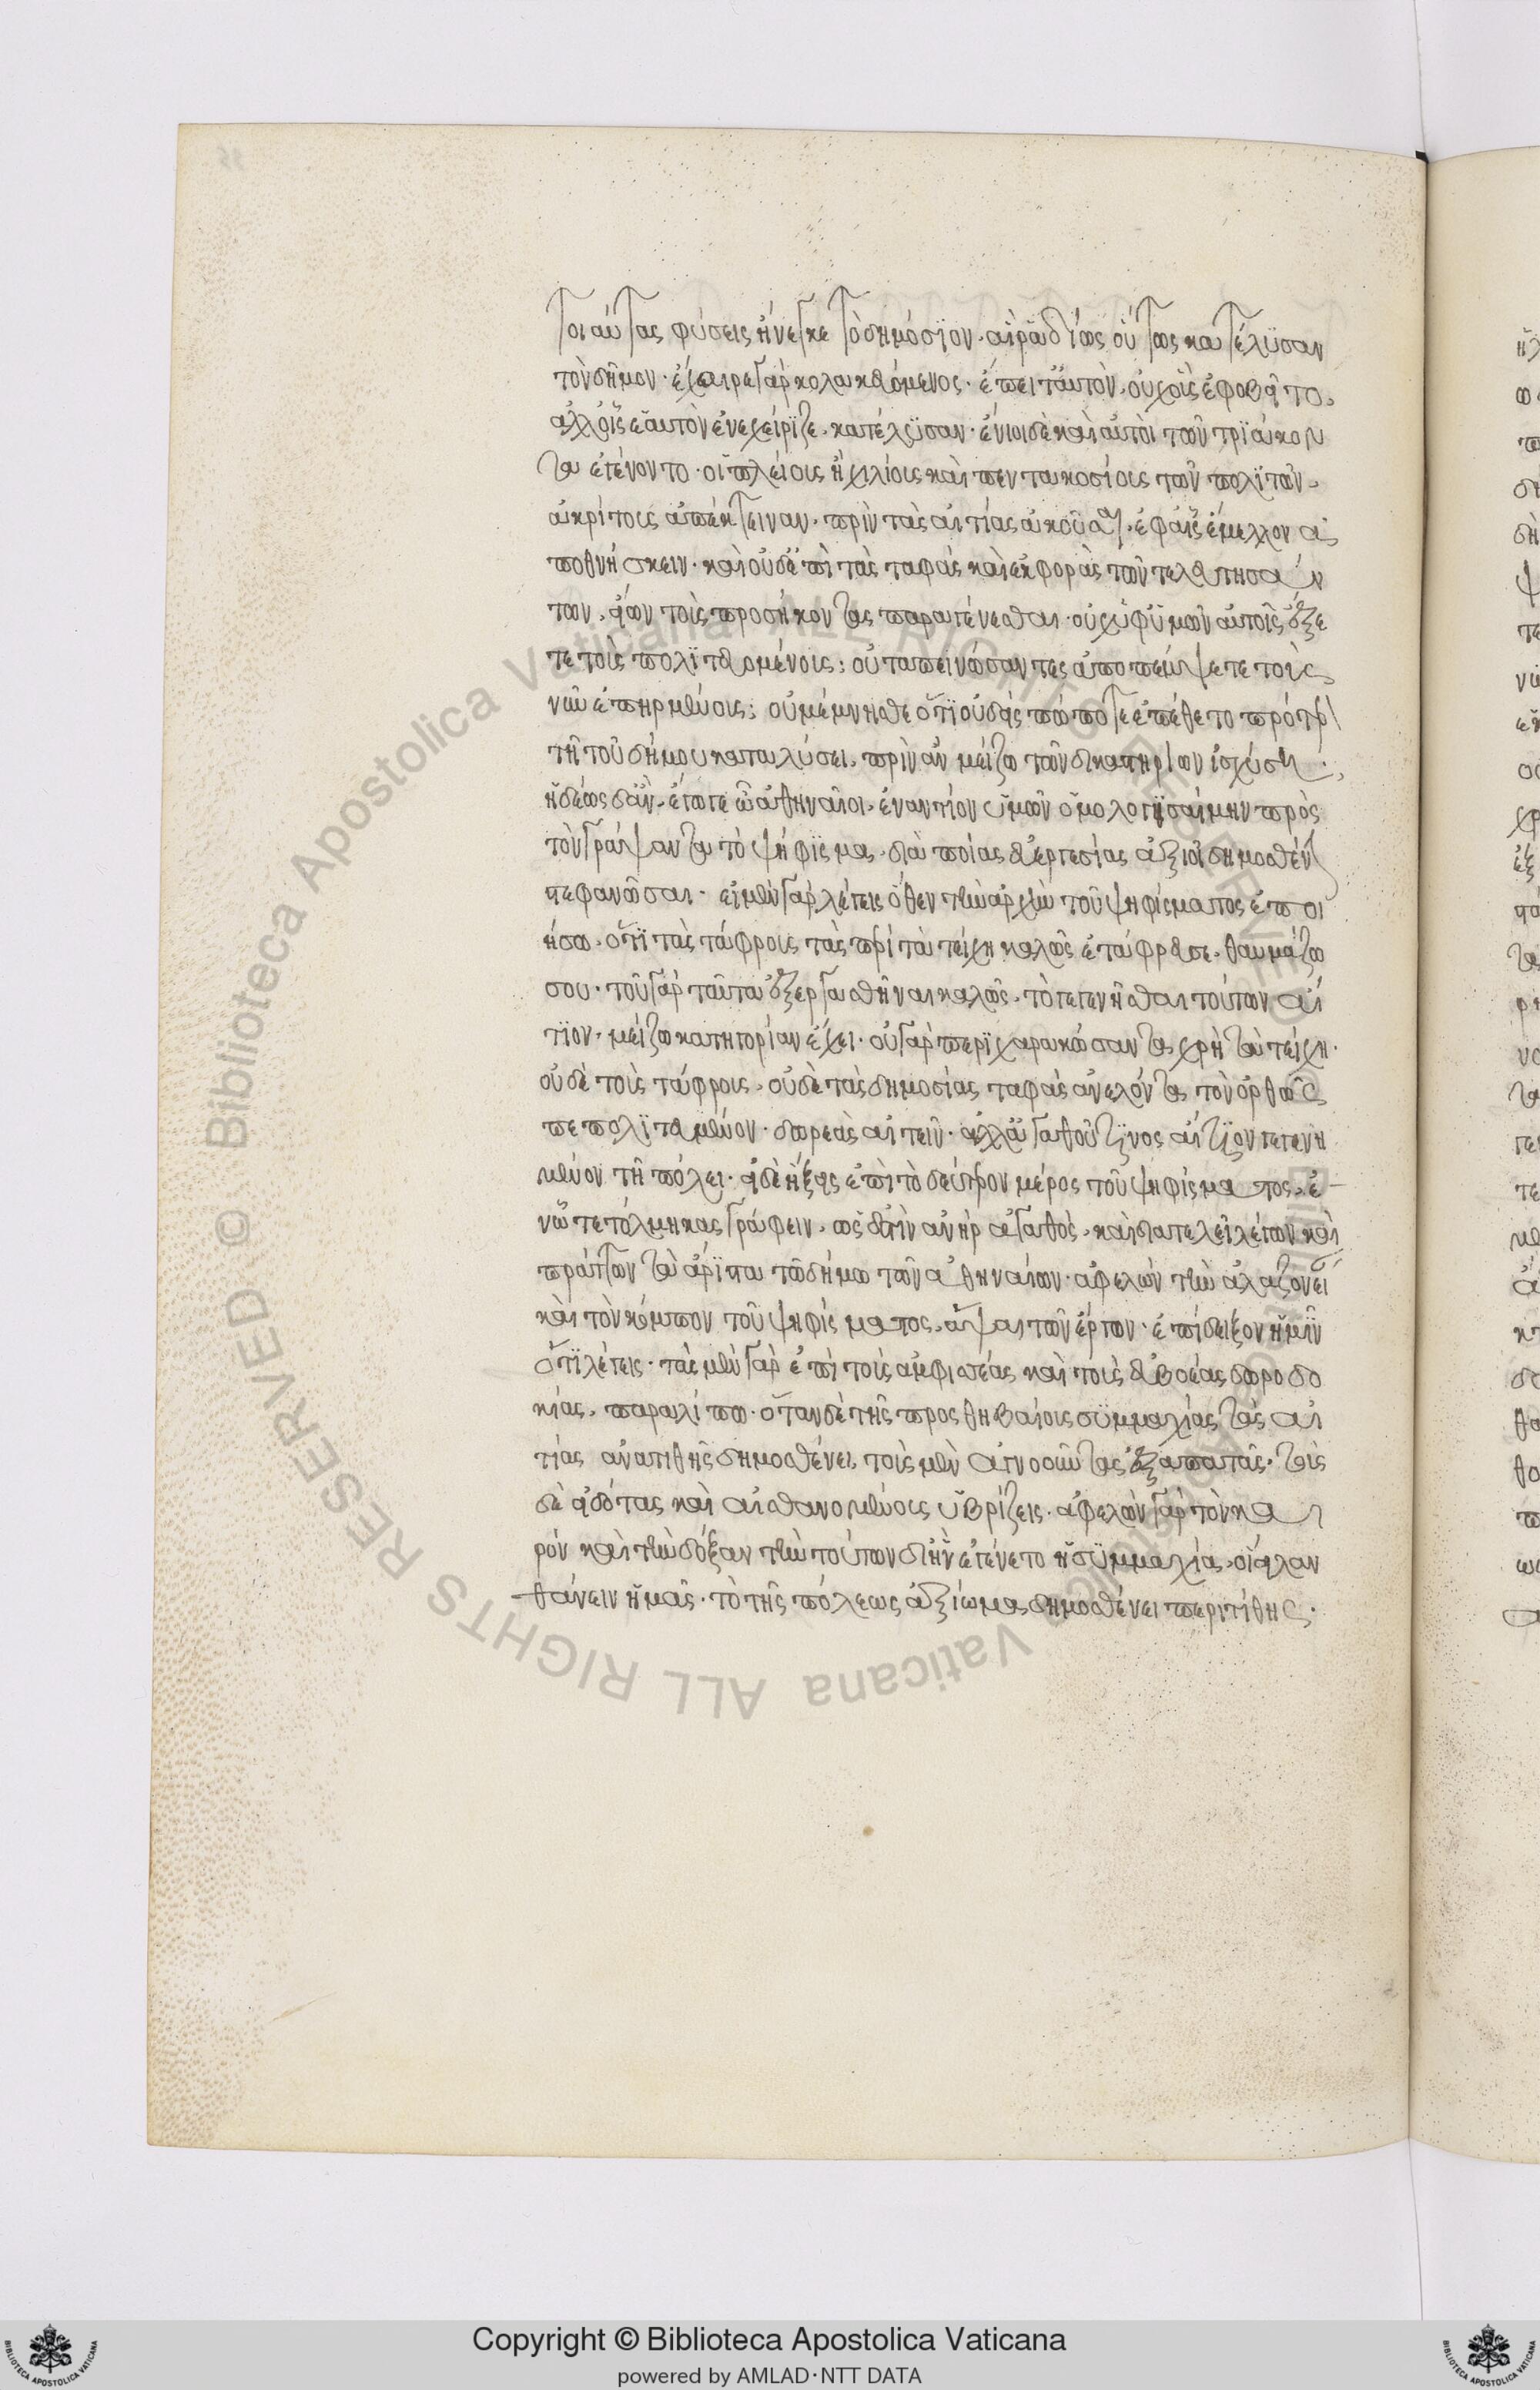 τοιαύτας φύσεις ἤνεγκε τὸ δημόσιον. αἳ ῥᾳδίως οὕτως κατέλυσαν
τὸν δῆμον. ἔχαιρε γὰρ κολακευόμενος. ἔπειτ' αὐτὸν, οὐχ οἷς ἐφοβεῖτο,
ἀλλ' οἷς ἑαυτὸν ἐνεχείριζε, κατέλυσαν. ἔνιοι δὲ καὶ αὐτοὶ τῶν τριάκον
τα ἐγένοντο. οἳ πλείους ἢ χιλίους καὶ πεντακοσίους τῶν πολιτῶν,
ἀκρίτους ἀπέκτειναν, πρὶν τὰς αἰτίας ἀκοῦσαι, ἐφ' αἷς ἔμελλον ἀ
ποθνήσκειν. καὶ οὐδ' ἐπὶ τὰς ταφὰς καὶ ἐκφορὰς τῶν τελευτησάν
των, εἴων τοὺς προσήκοντας παραγένεσθαι. οὐχ ὑφ' ὑμῶν αὐτοῖς ἕξε
τε τοὺς πολιτευομένους; οὐ ταπεινώσαντες ἀποπέμψετε τοὺς
νῦν ἐπηρμένους; οὐ μέμνησθε ὅτι οὐδεὶς πώποτε ἐπέθετο πρότερ
τῇ τοῦ δήμου καταλύσει, πρὶν ἂν μείζω τῶν δικαστηρίων ἰσχύσῃ.
ἡδέως δ' ἂν ἔγωγε ὦ ἀθηναῖοι, ἐναντίον ὑμῶν ὁμολογησαίμην πρὸς
τὸν γράψαντα τὸ ψήφισμα, διὰ ποίας εὐεργεσίας ἀξιοῖ δημοσθένην
στεφανῶσαι. εἰ μὲν γὰρ λέγεις ὅθεν τὴν ἀρχὴν τοῦ ψηφίσματος ἐποι
ήσω, ὅτι τὰς τάφρους τὰς περὶ τὰ τείχη καλῶς ἐτάφρευσε, θαυμάζω
σου. τοῦ γὰρ ταῦτα ἐξεργασθῆναι καλῶς, τὸ γεγενῆσθαι τούτων αἴ
τιον, μείζω κατηγορίαν ἔχει. οὐ γὰρ περιχαρακώσαντα χρὴ τὰ τείχη.
οὐδὲ τοὺς τάφρους, οὐδὲ τὰς δημοσίας ταφὰς ἀνελόντα τὸν ὀρθῶς
πεπολιτευμένον, δωρεὰς αἰτεῖν. ἀλλ' ἀγαθοῦ τινος αἴτιον γεγενη
μένον τῇ πόλει. εἰ δὲ ἥξεις ἐπὶ τὸ δεύτερον μέρος τοῦ ψηφίσματος, ἐ
ν ᾧ τετόλμηκας γράφειν, ὡς ἔστιν ἀνὴρ ἀγαθὸς, καὶ διατελεῖ λέγων καὶ
πράττων τὰ ἄριστα τῷ δήμῳ τῶν ἀθηναίων. ἀφελὼν τὴν ἀλαζονεί
καὶ τὸν κόμπον τοῦ ψηφίσματος, ἅψαι τῶν ἔργων. ἐπίδειξον ἡμῖν
ὅτι λέγεις. τὰς μὲν γὰρ ἐπὶ τοὺς ἀμφισσέας καὶ τοὺς εὐβοέας δωροδο
κίας, παραλίπω. ὅταν δὲ τῆς πρὸς θηβαίους συμμαχίας τὰς αἰ
τίας ἀνατιθῇς δημοσθένει, τοὺς μὲν ἀγνοοῦντας ἐξαπατᾷς, τοὺς
δὲ εἰδότας καὶ αἰσθανομένους ὑβρίζεις. ἀφελὼν γὰρ τὸν και
ρὸν καὶ τὴν δόξαν τὴν τούτων δι' ἣν ἐγένετο ἡ συμμαχία, οἴει λαν
θάνειν ἡμᾶς, τὸ τῆς πόλεως ἀξίωμα δημοσθένει περιτιθείς.